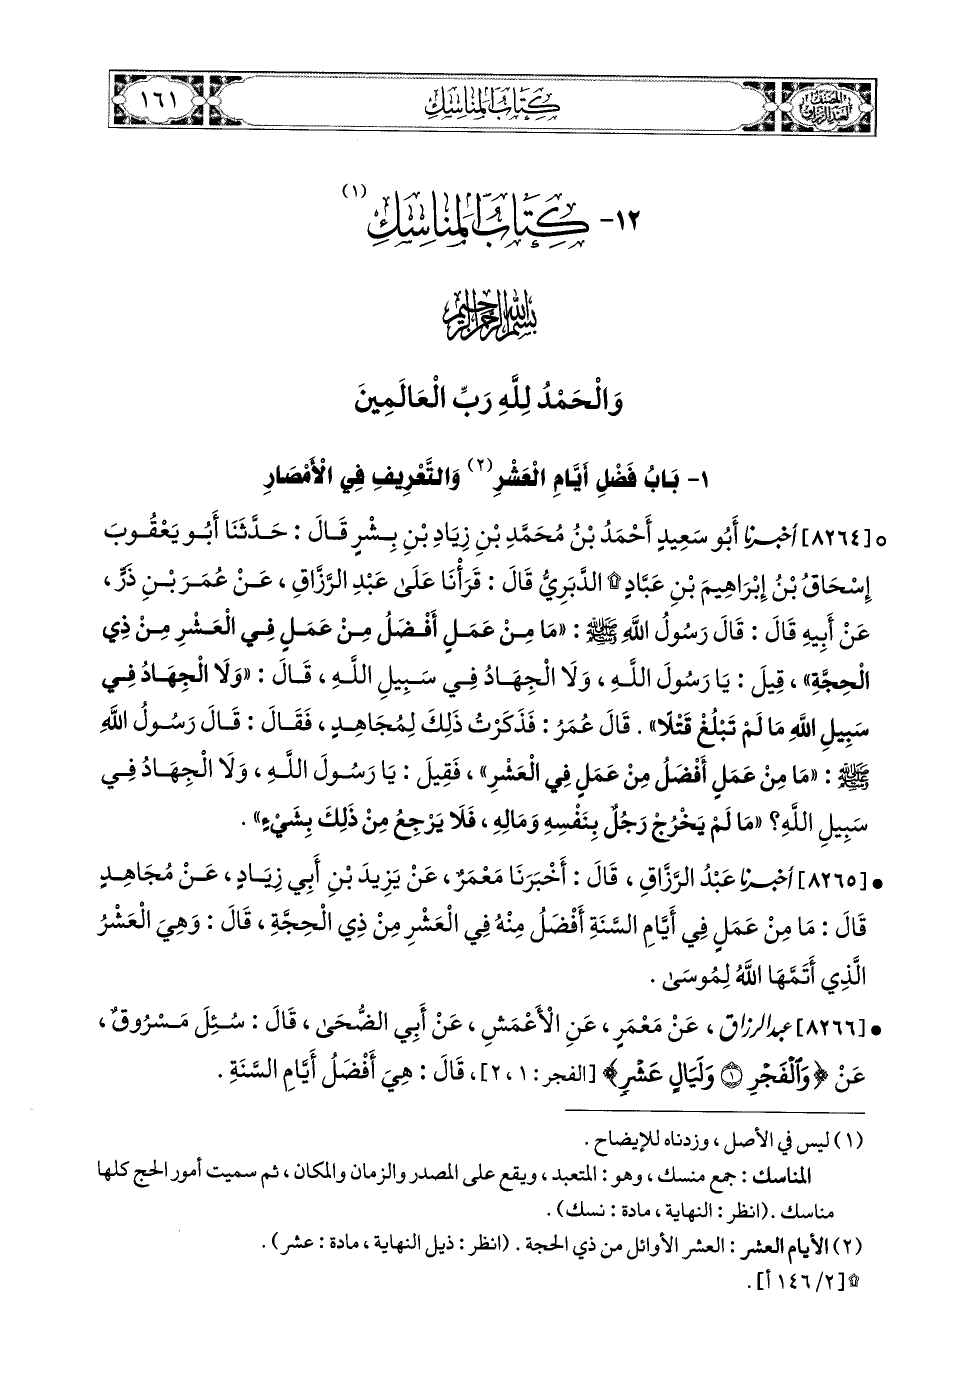 المصنف
لعبد الرزاق
كِتَابُ الْمَنَاسِكِ
١٦١
١٢- كِتَابُ الْمَنَاسِكِ (١)
بسم الله الرحمن الرحيم
وَالْحَمْدُ لِلَّهِ رَبِّ الْعَالَمِينَ
١- بَابُ فَضْلِ أَيَّامِ الْعَشْرِ (٢) وَالتَّعْرِيفِ فِي الْأَمْصَارِ
○ [٨٢٦٤] أخبرنا أَبُو سَعِيدٍ أَحْمَدُ بْنُ مُحَمَّدِ بْنِ زِيَادِ بْنِ بِشْرٍ قَالَ : حَدَّثَنَا أَبُو يَعْقُوبَ
إِسْحَاقُ بْنُ إِبْرَاهِيمَ بْنِ عَبَّادٍ ۩ الدَّبَرِيُّ قَالَ : قَرَأْنَا عَلَى عَبْدِ الرَّزَّاقِ ، عَنْ عُمَرَ بْنِ ذَرٍّ ،
عَنْ أَبِيهِ قَالَ : قَالَ رَسُولُ اللَّهِ ﷺ : «مَا مِنْ عَمَلٍ أَفْضَلُ مِنْ عَمَلٍ فِي الْعَشْرِ مِنْ ذِي
الْحِجَّةِ» ، قِيلَ : يَا رَسُولَ اللَّهِ ، وَلَا الْجِهَادُ فِي سَبِيلِ اللَّهِ ، قَالَ : «وَلَا الْجِهَادُ فِي
سَبِيلِ اللَّهِ مَا لَمْ تَبْلُغْ قَتْلًا» . قَالَ عُمَرُ : فَذَكَرْتُ ذَلِكَ لِمُجَاهِدٍ ، فَقَالَ : قَالَ رَسُولُ اللَّهِ
ﷺ : «مَا مِنْ عَمَلٍ أَفْضَلُ مِنْ عَمَلٍ فِي الْعَشْرِ» ، فَقِيلَ : يَا رَسُولَ اللَّهِ ، وَلَا الْجِهَادُ فِي
سَبِيلِ اللَّهِ؟ «مَا لَمْ يَخْرُجْ رَجُلٌ بِنَفْسِهِ وَمَالِهِ ، فَلَا يَرْجِعُ مِنْ ذَلِكَ بِشَيْءٍ» .
• [٨٢٦٥] أخبرنا عَبْدُ الرَّزَّاقِ ، قَالَ : أَخْبَرَنَا مَعْمَرٌ ، عَنْ يَزِيدَ بْنِ أَبِي زِيَادٍ ، عَنْ مُجَاهِدٍ
قَالَ : مَا مِنْ عَمَلٍ فِي أَيَّامِ السَّنَةِ أَفْضَلُ مِنْهُ فِي الْعَشْرِ مِنْ ذِي الْحِجَّةِ ، قَالَ : وَهِيَ الْعَشْرُ
الَّذِي أَتَمَّهَا اللَّهُ لِمُوسَى .
• [٨٢٦٦] عبد الرزاق ، عَنْ مَعْمَرٍ ، عَنِ الْأَعْمَشِ ، عَنْ أَبِي الضُّحَى ، قَالَ : سُئِلَ مَسْرُوقٌ ،
عَنْ ﴿وَٱلْفَجْرِ ۝١ وَلَيَالٍ عَشْرٍ﴾ [الفجر: ١ ، ٢] ، قَالَ : هِيَ أَفْضَلُ أَيَّامِ السَّنَةِ .
(١) ليس في الأصل ، وزدناه للإيضاح .
المناسك : جمع منسك ، وهو : المتعبد ، ويقع على المصدر والزمان والمكان ، ثم سميت أمور الحج كلها
مناسك . (انظر : النهاية ، مادة : نسك) .
(٢) الأيام العشر : العشر الأوائل من ذي الحجة . (انظر : ذيل النهاية ، مادة : عشر) .
۩ [٢/ ١٤٦ أ] .